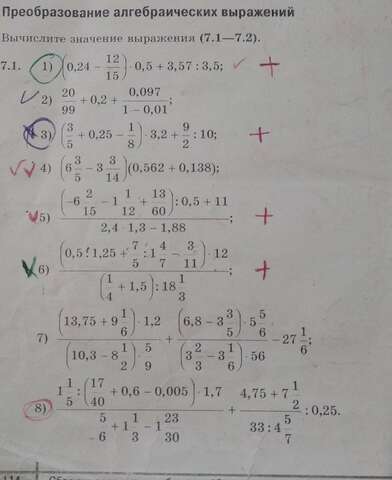 Преобразование алгебраических выражений
Вычислите значение выражения (7.1—7.2).
7.1. 1) (0,24 − 12/15) · 0,5 + 3,57 : 3,5;
2) 20/99 + 0,2 + 0,097/(1 − 0,01);
3) (3/5 + 0,25 − 1/8) · 3,2 + 9/2 : 10;
4) (6 3/5 − 3 3/14)(0,562 + 0,138);
5) ((−6 2/15 − 1 1/12 + 13/60) : 0,5 + 11)/(2,4 · 1,3 − 1,88);
6) ((0,5 : 1,25 + 7/5 : 1 4/7 − 3/11) · 12)/((1/4 + 1,5) : 18 1/3)
7) ((13,75 + 9 1/6) · 1,2)/((10,3 − 8 1/2) · 5/9) + ((6,8 − 3 3/5) · 5 5/6)/((3 2/3 − 3 1/6) · 56) − 27 1/6;
8) (1 1/5 : (17/40 + 0,6 − 0,005) · 1,7)/(5/6 + 1 1/3 − 1 23/30) + (4,75 + 7 1/2)/(33 : 4 5/7) : 0,25.